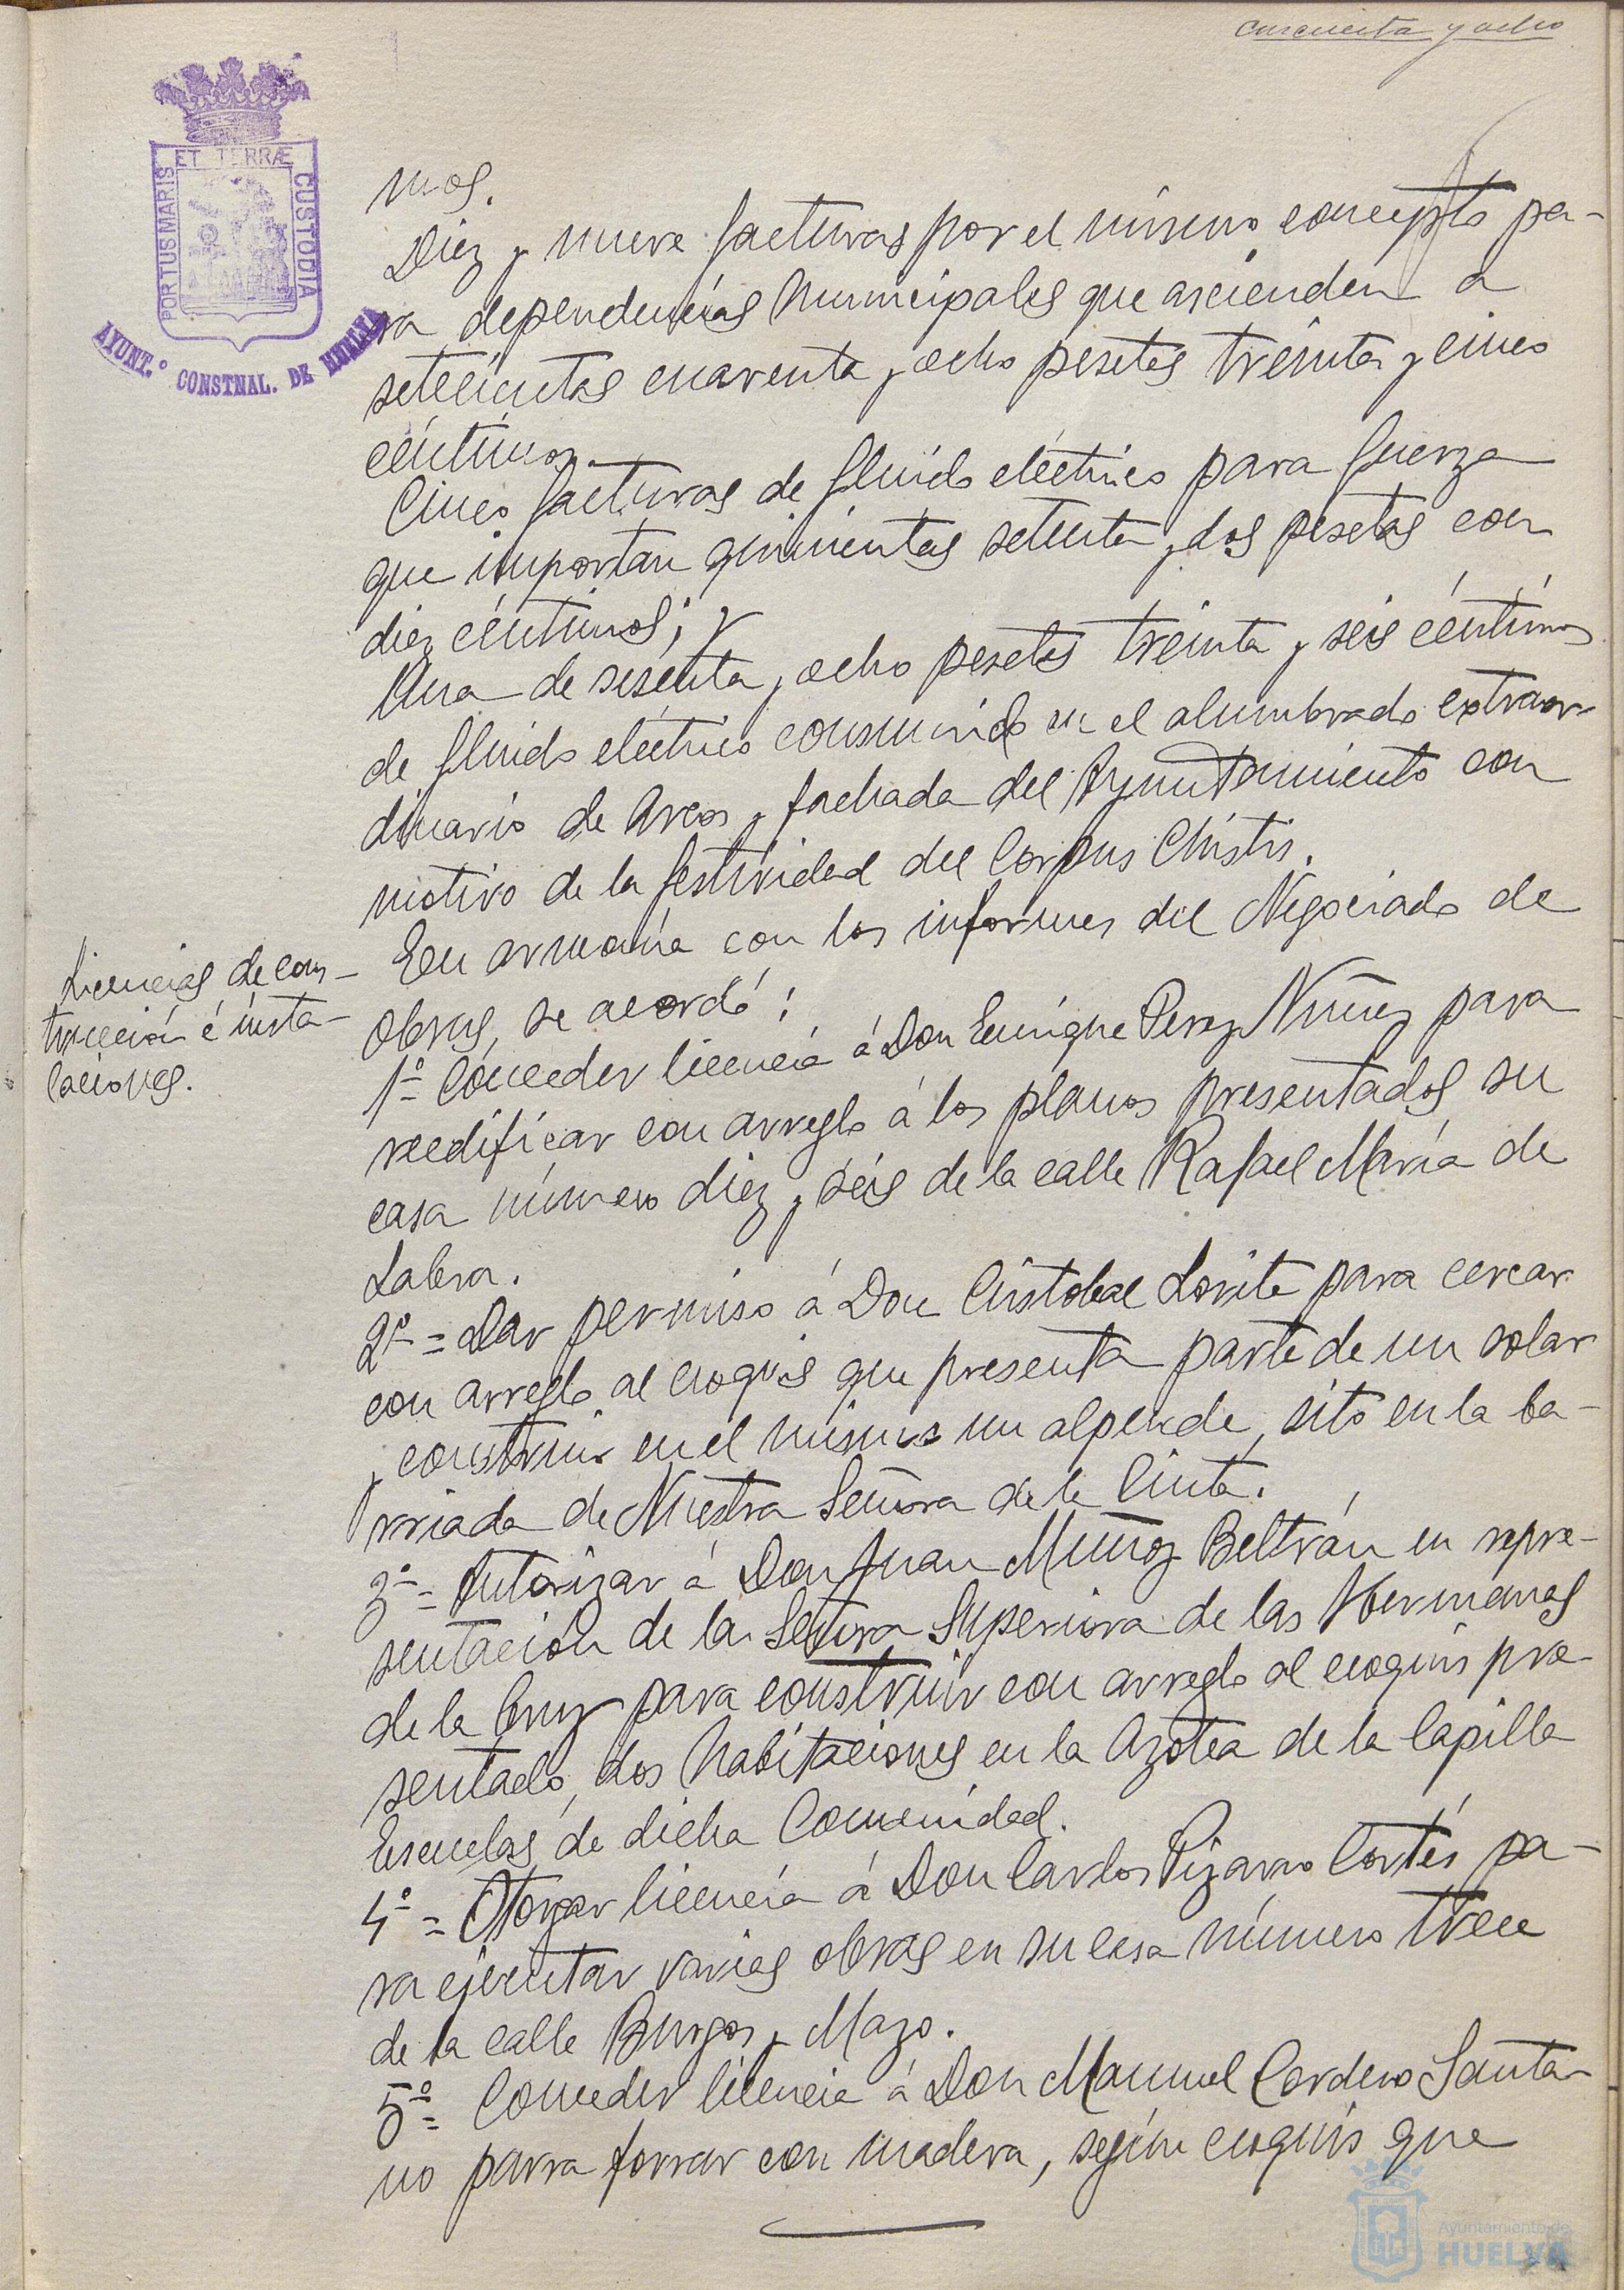 cincuenta y ocho
PORTUS MARIS ET TERRÆ CUSTODIA
AYUNT.º CONSTNAL. DE HUELVA
mos.
Diez y nueve facturas por el mismo concepto pa-
ra dependencias Municipales que ascienden a
setecientas cuarenta y ocho pesetas treinta y cinco
céntimos.
Cinco facturas de fluido eléctrico para fuerza
que importan quinientas setenta y dos pesetas con
diez céntimos; y
Una de sesenta y ocho pesetas treinta y seis céntimos
de fluido eléctrico consumido en el alumbrado extraor-
dinario de Arcos y fachada del Ayuntamiento con
motivo de la festividad del Corpus Christi.
Licencias de cons-
trucción é insta-
laciones.
En armonía con los informes del Negociado de
obras, se acordó:
1º Conceder licencia á Don Enrique Perez Nuñez para
reedificar con arreglo á los planos presentados su
casa número diez y seis de la calle Rafael María de
Labra.
2º = Dar permiso á Don Cristobal Lorite para cercar
con arreglo al croquis que presenta parte de un solar
y construir en el mismo un alpende, sito en la ba-
rriada de Nuestra Señora de la Cinta.
3º = Autorizar á Don Juan Muñoz Beltrán en repre-
sentación de la Señora Superiora de las Hermanas
de la Cruz para construir con arreglo al croquis pre-
sentado, dos habitaciones en la Azotea de la Capilla
Escuelas de dicha Comunidad.
4º = Otorgar licencia á Don Carlos Pizarro Cortés pa-
ra ejecutar varias obras en su casa número trece
de la calle Burgos y Mazo.
5º = Conceder licencia á Don Manuel Cordero Santa-
no parra forrar con madera, según croquis que
Ayuntamiento de
HUELVA